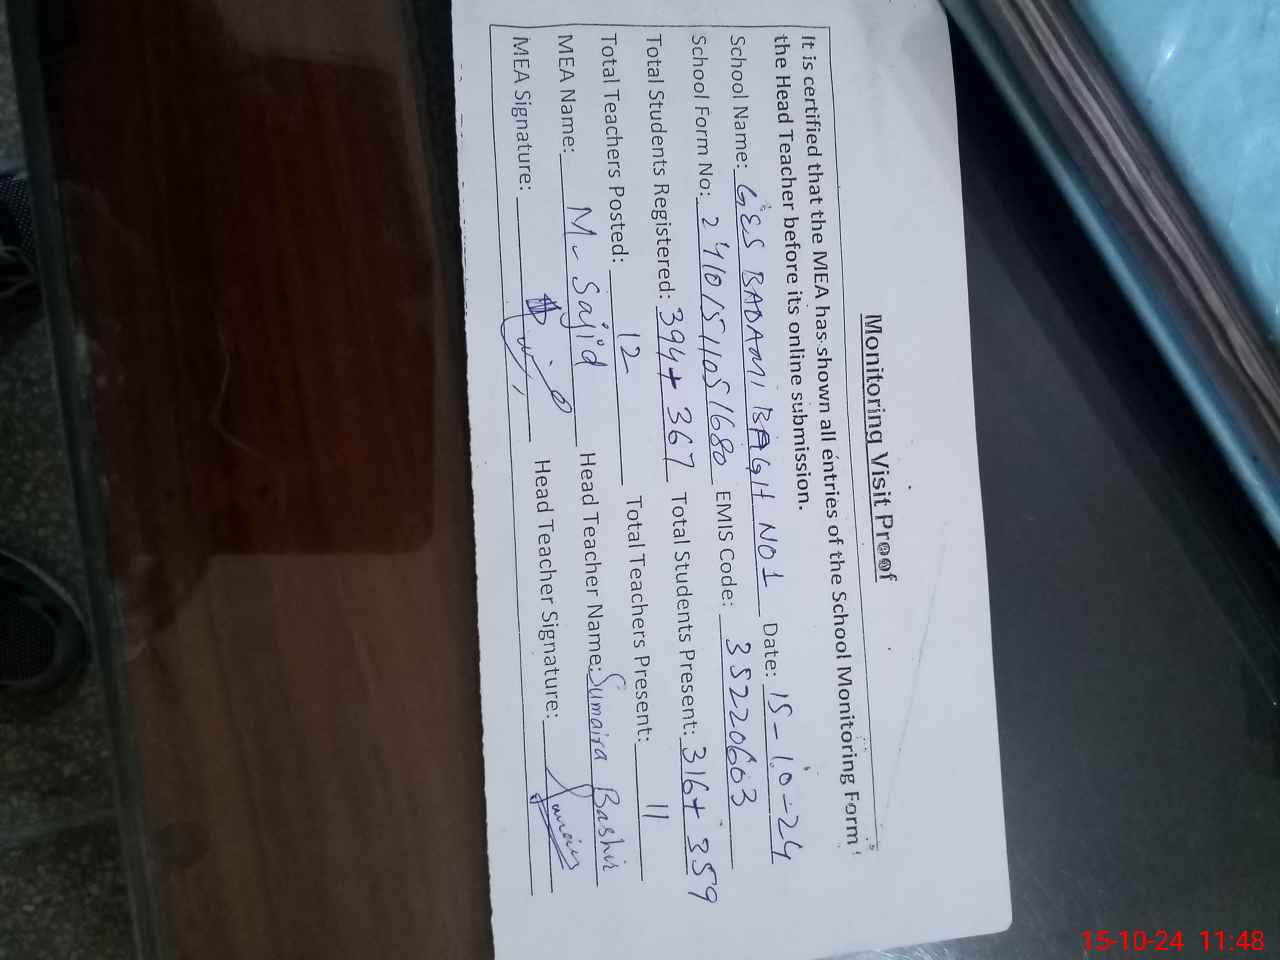 Monitoring Visit Proof
It is certified that the MEA has shown all entries of the School Monitoring Form
the Head Teacher before its online submission.
School Name: GES BADAMI BAGH NO1 Date: 15-10-24
School Form No: 24101511051680 EMIS Code: 35220603
Total Students Registered: 394+367 Total Students Present: 316+359
Total Teachers Posted: 12 Total Teachers Present: 11
MEA Name: M. Sajid Head Teacher Name: Sumaira Bashir
MEA Signature: Head Teacher Signature:
15-10-24 11:48